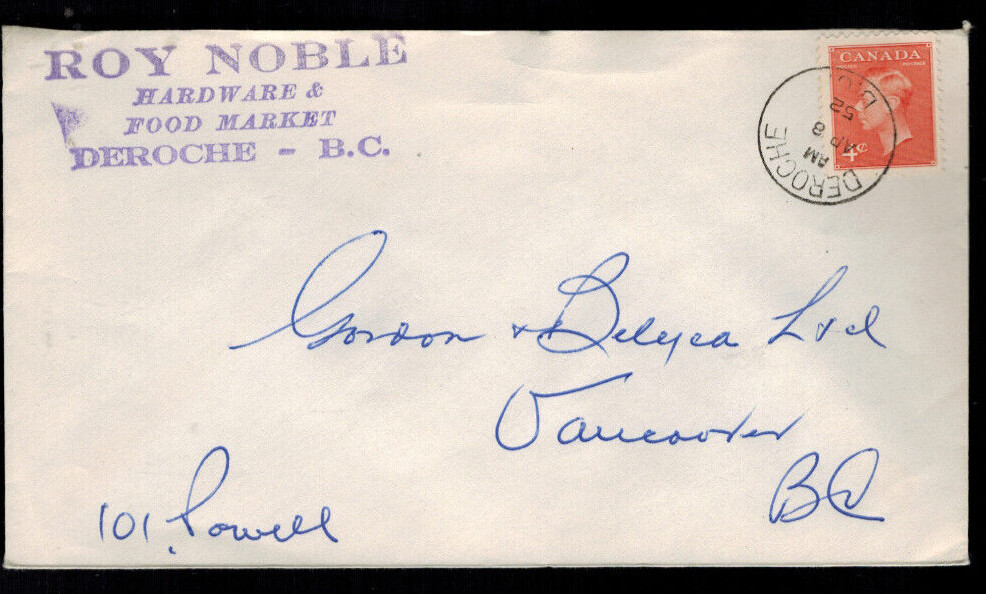 ROY NOBLE
HARDWARE &
FOOD MARKET
DEROCHE - B.C.
CANADA
POSTES POSTAGE
4¢
DEROCHE
AM
AP 8
52
B.C.
Gordon + Belyea Ltd
Vancouver
BC
101 Powell